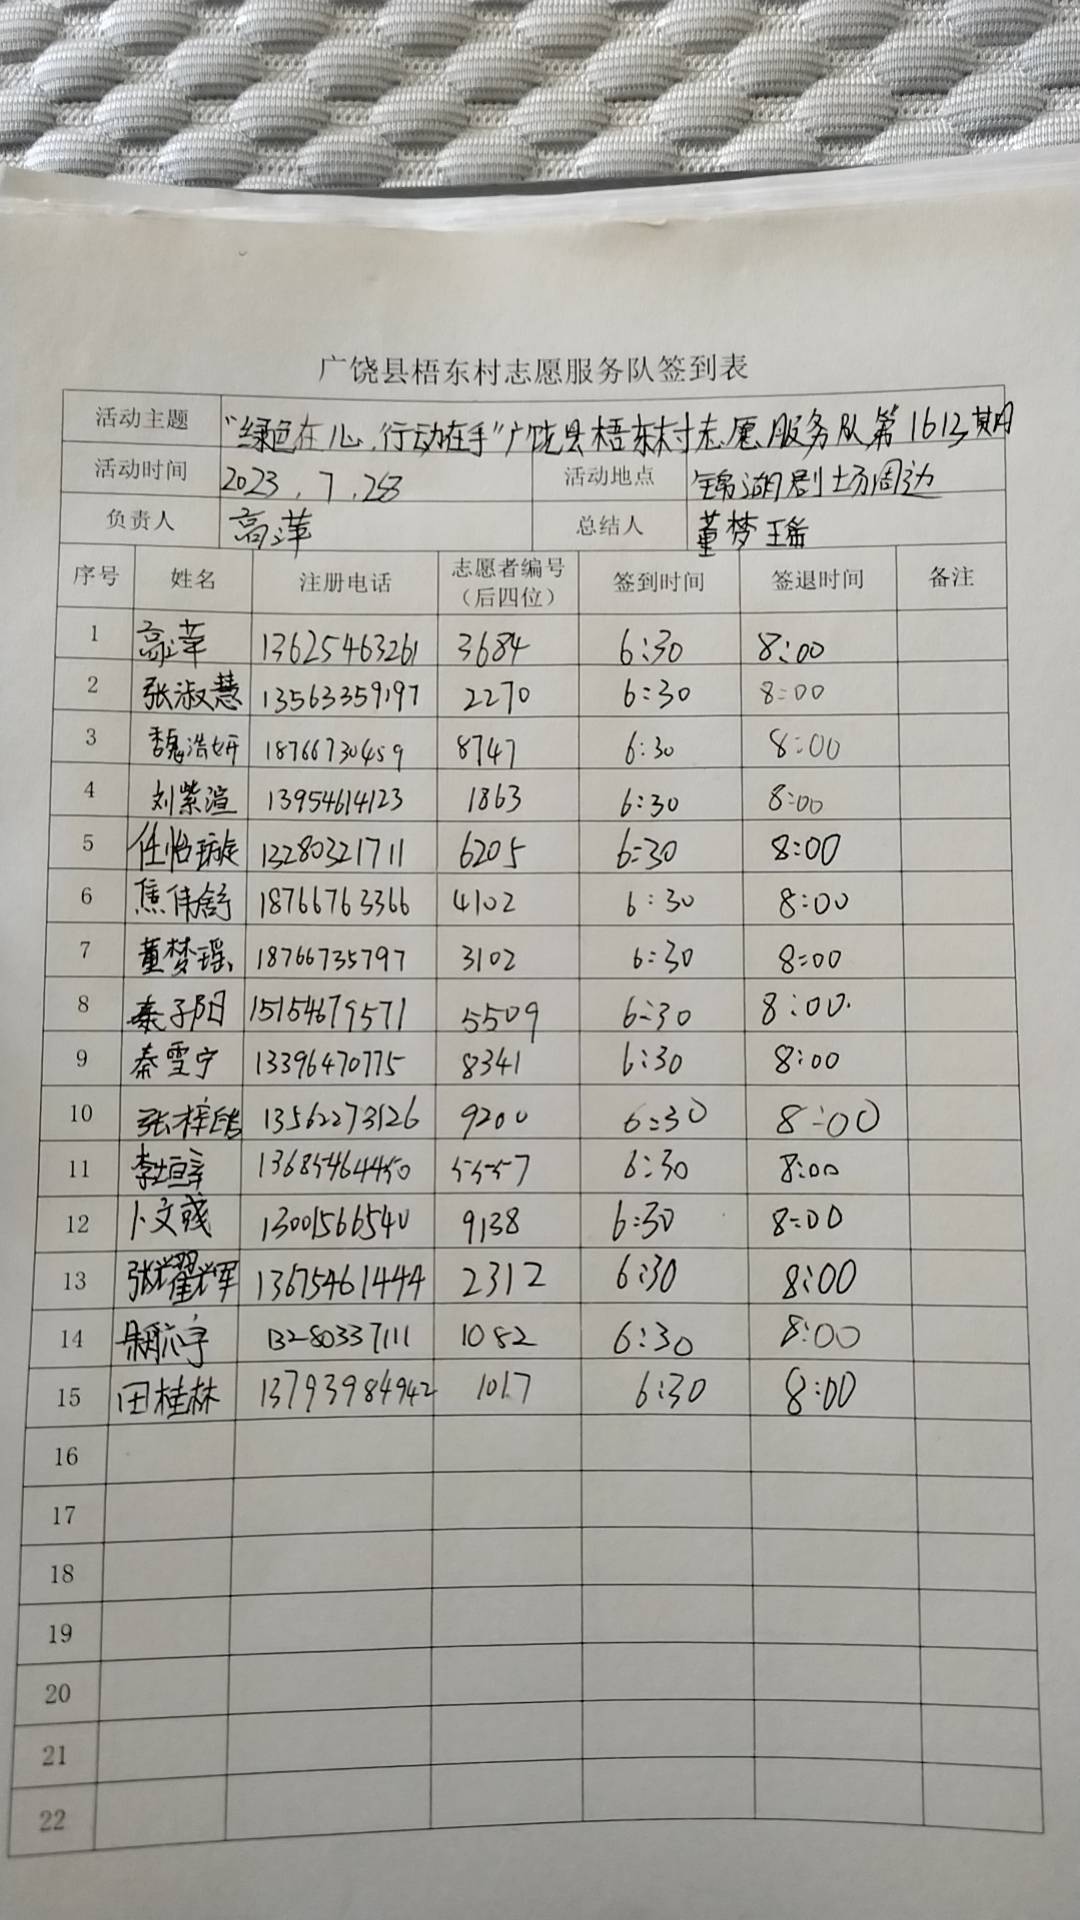 广饶县梧东村志愿服务队签到表
活动主题 "绿色在心,行动在手"广饶县梧东村志愿服务队第1613期
活动时间 2023.7.28 活动地点 锦湖剧场周边
负责人 高萍 总结人 董梦瑶
序号 姓名 注册电话 志愿者编号(后四位) 签到时间 签退时间 备注
1 高萍 13625463261 3684 6:30 8:00
2 张淑慧 13563359197 2270 6:30 8:00
3 魏浩妍 18766730459 8747 6:30 8:00
4 刘紫渲 13954614123 1863 6:30 8:00
5 任怡璇 13280321711 6205 6:30 8:00
6 焦伟舒 18766763366 4102 6:30 8:00
7 董梦瑶 18766735797 3102 6:30 8:00
8 秦子阳 15154679571 5509 6:30 8:00
9 秦雪宁 13396470775 8341 6:30 8:00
10 张梓皓 13562273126 9200 6:30 8:00
11 李垣辛 13685464450 5557 6:30 8:00
12 卜文彧 13001566540 9138 6:30 8:00
13 张耀辉 13675461444 2312 6:30 8:00
14 宇 13280337111 1082 6:30 8:00
15 田桂林 13793984942 1017 6:30 8:00
16
17
18
19
20
21
22